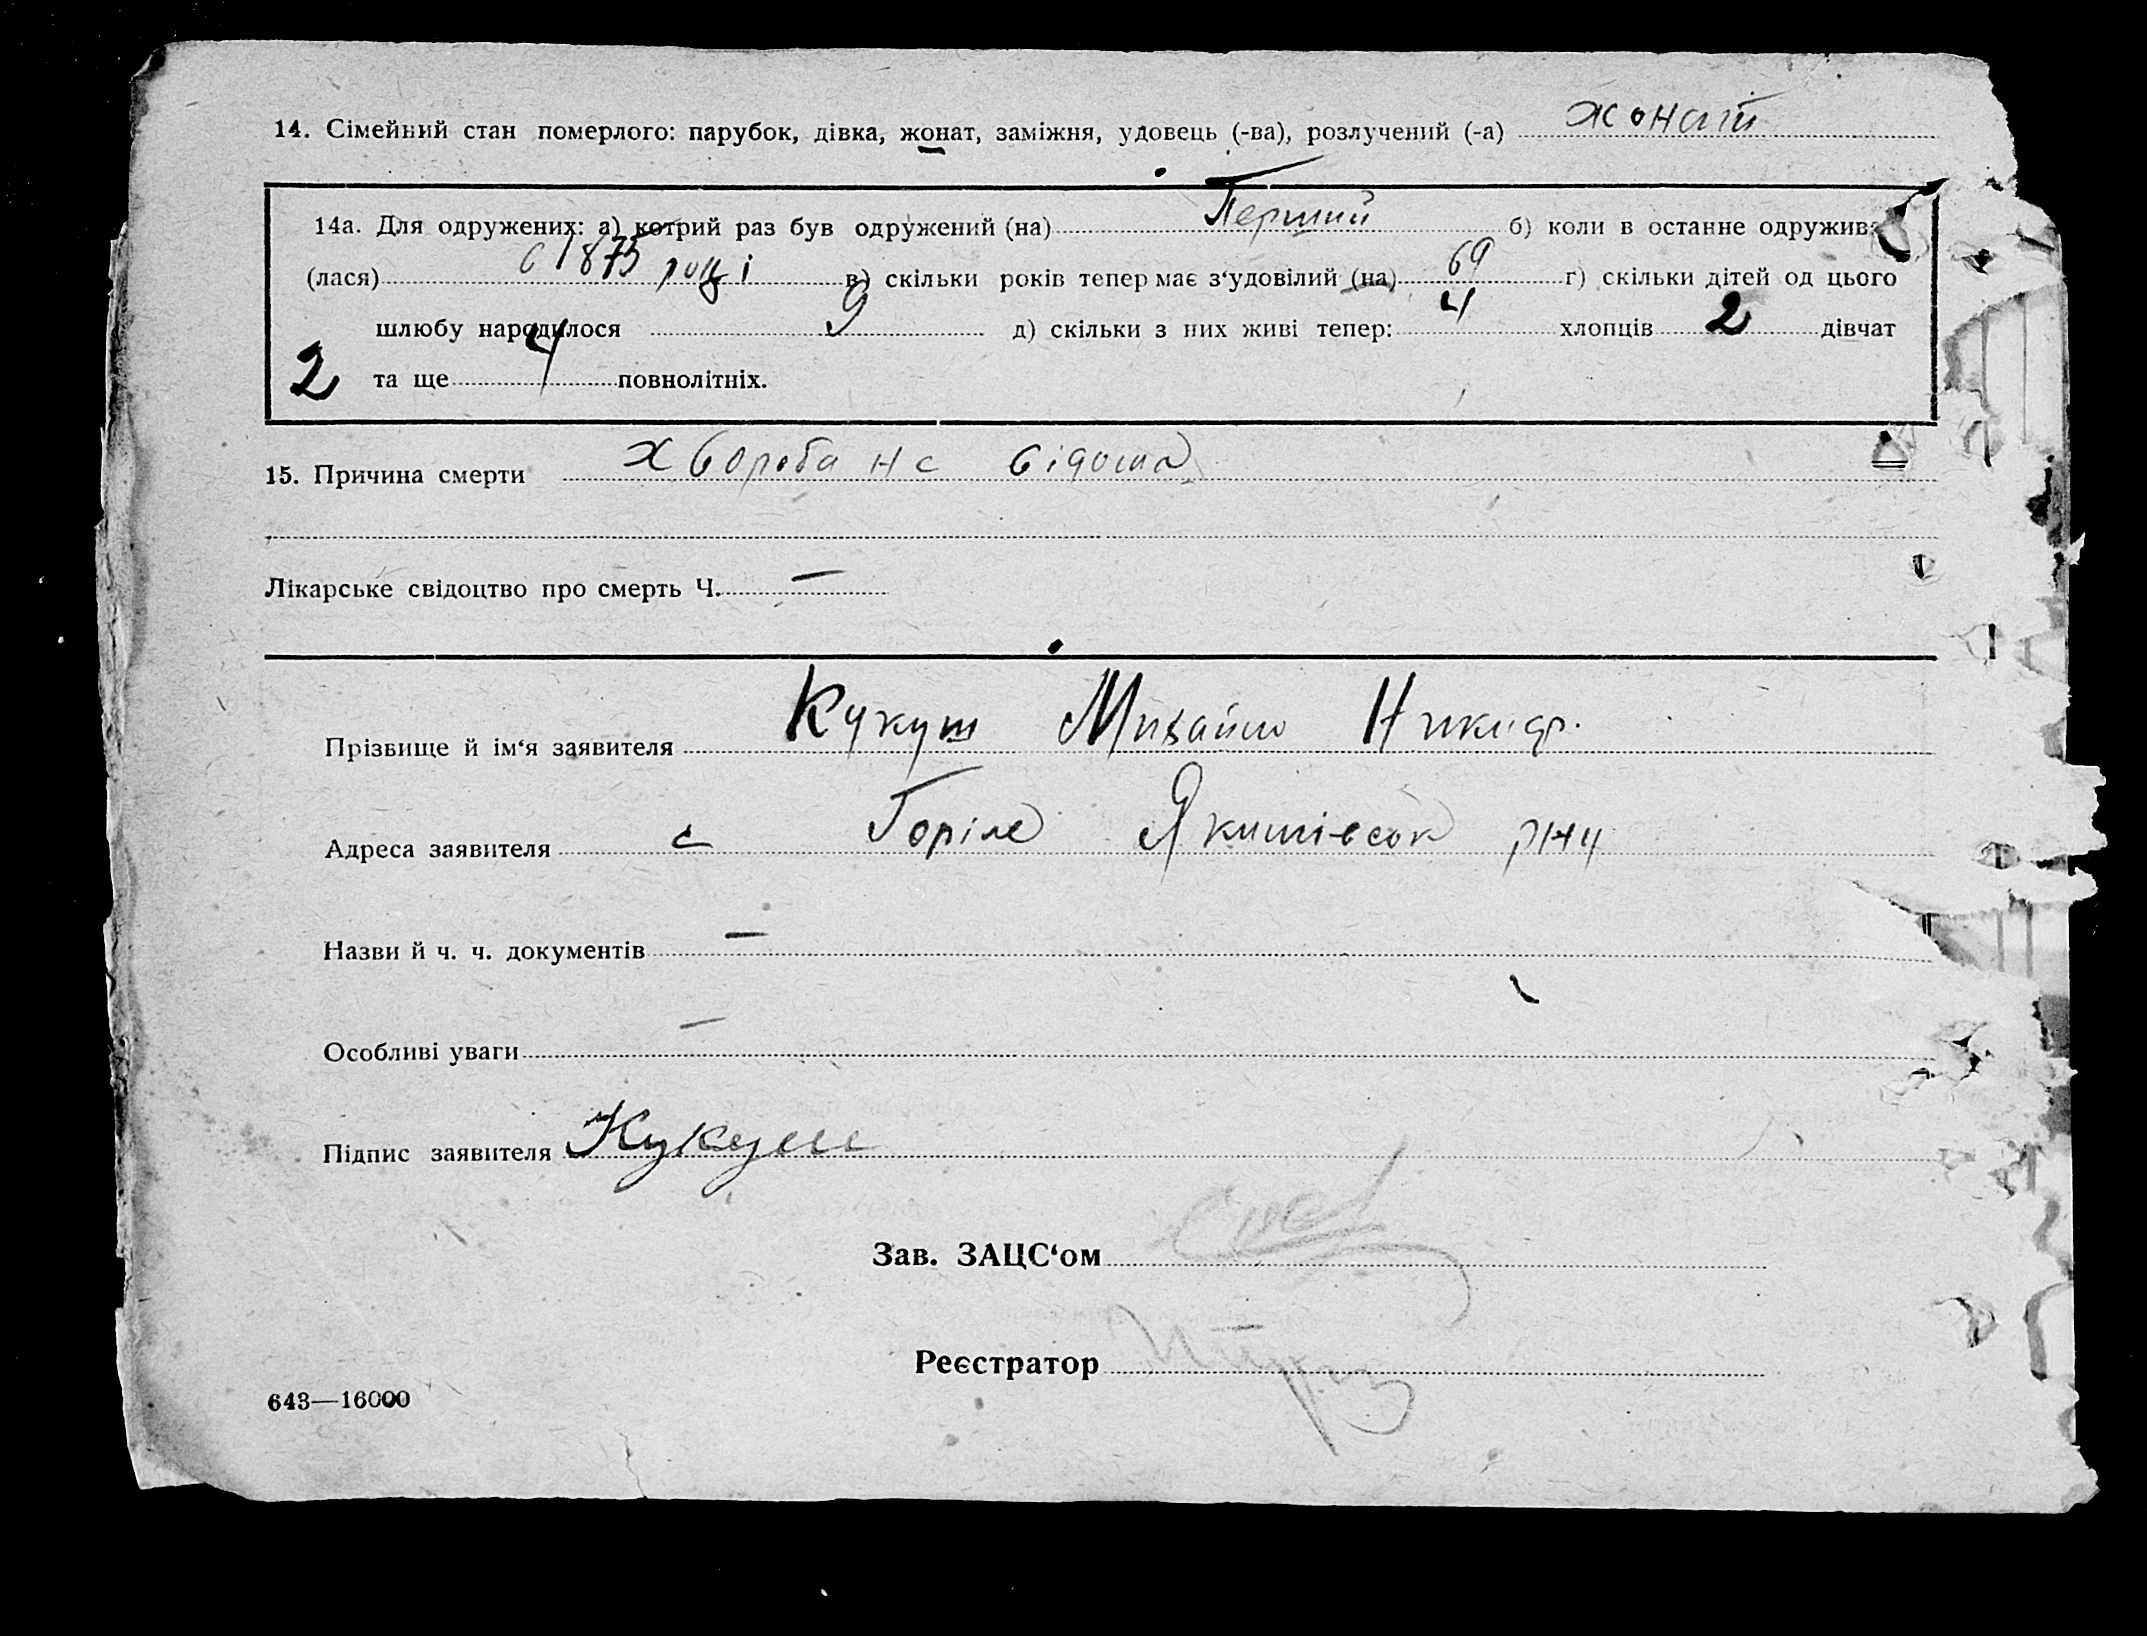 14. Сімейний стан померлого: парубок, дівка, жонат, заміжня, удовець (-ва), розлучений (-а) жонат
14а. Для одружених: а) котрий раз був одружений (на) Перший б) коли в останне одружив
(лася) в 1875 році в) скільки років тепер має з‘удовілий (на) 69 г) скільки дітей од цього
шлюбу народилося 9 д) скільки з них живі тепер: 4 хлопців 2 дівчат
2 та ще 4 повнолітніх.
15. Причина смерти хвороба не відома
Лікарське свідоцтво про смерть Ч. —
Прізвище й ім‘я заявителя Кукуш Михайло Никиф.
Адреса заявителя с Горіле Якимівськ р-ну
Назви й ч. ч. документів —
Особливі уваги —
Підпис заявителя Кукуш
Зав. ЗАЦС‘ом
Реєстратор
643—16000